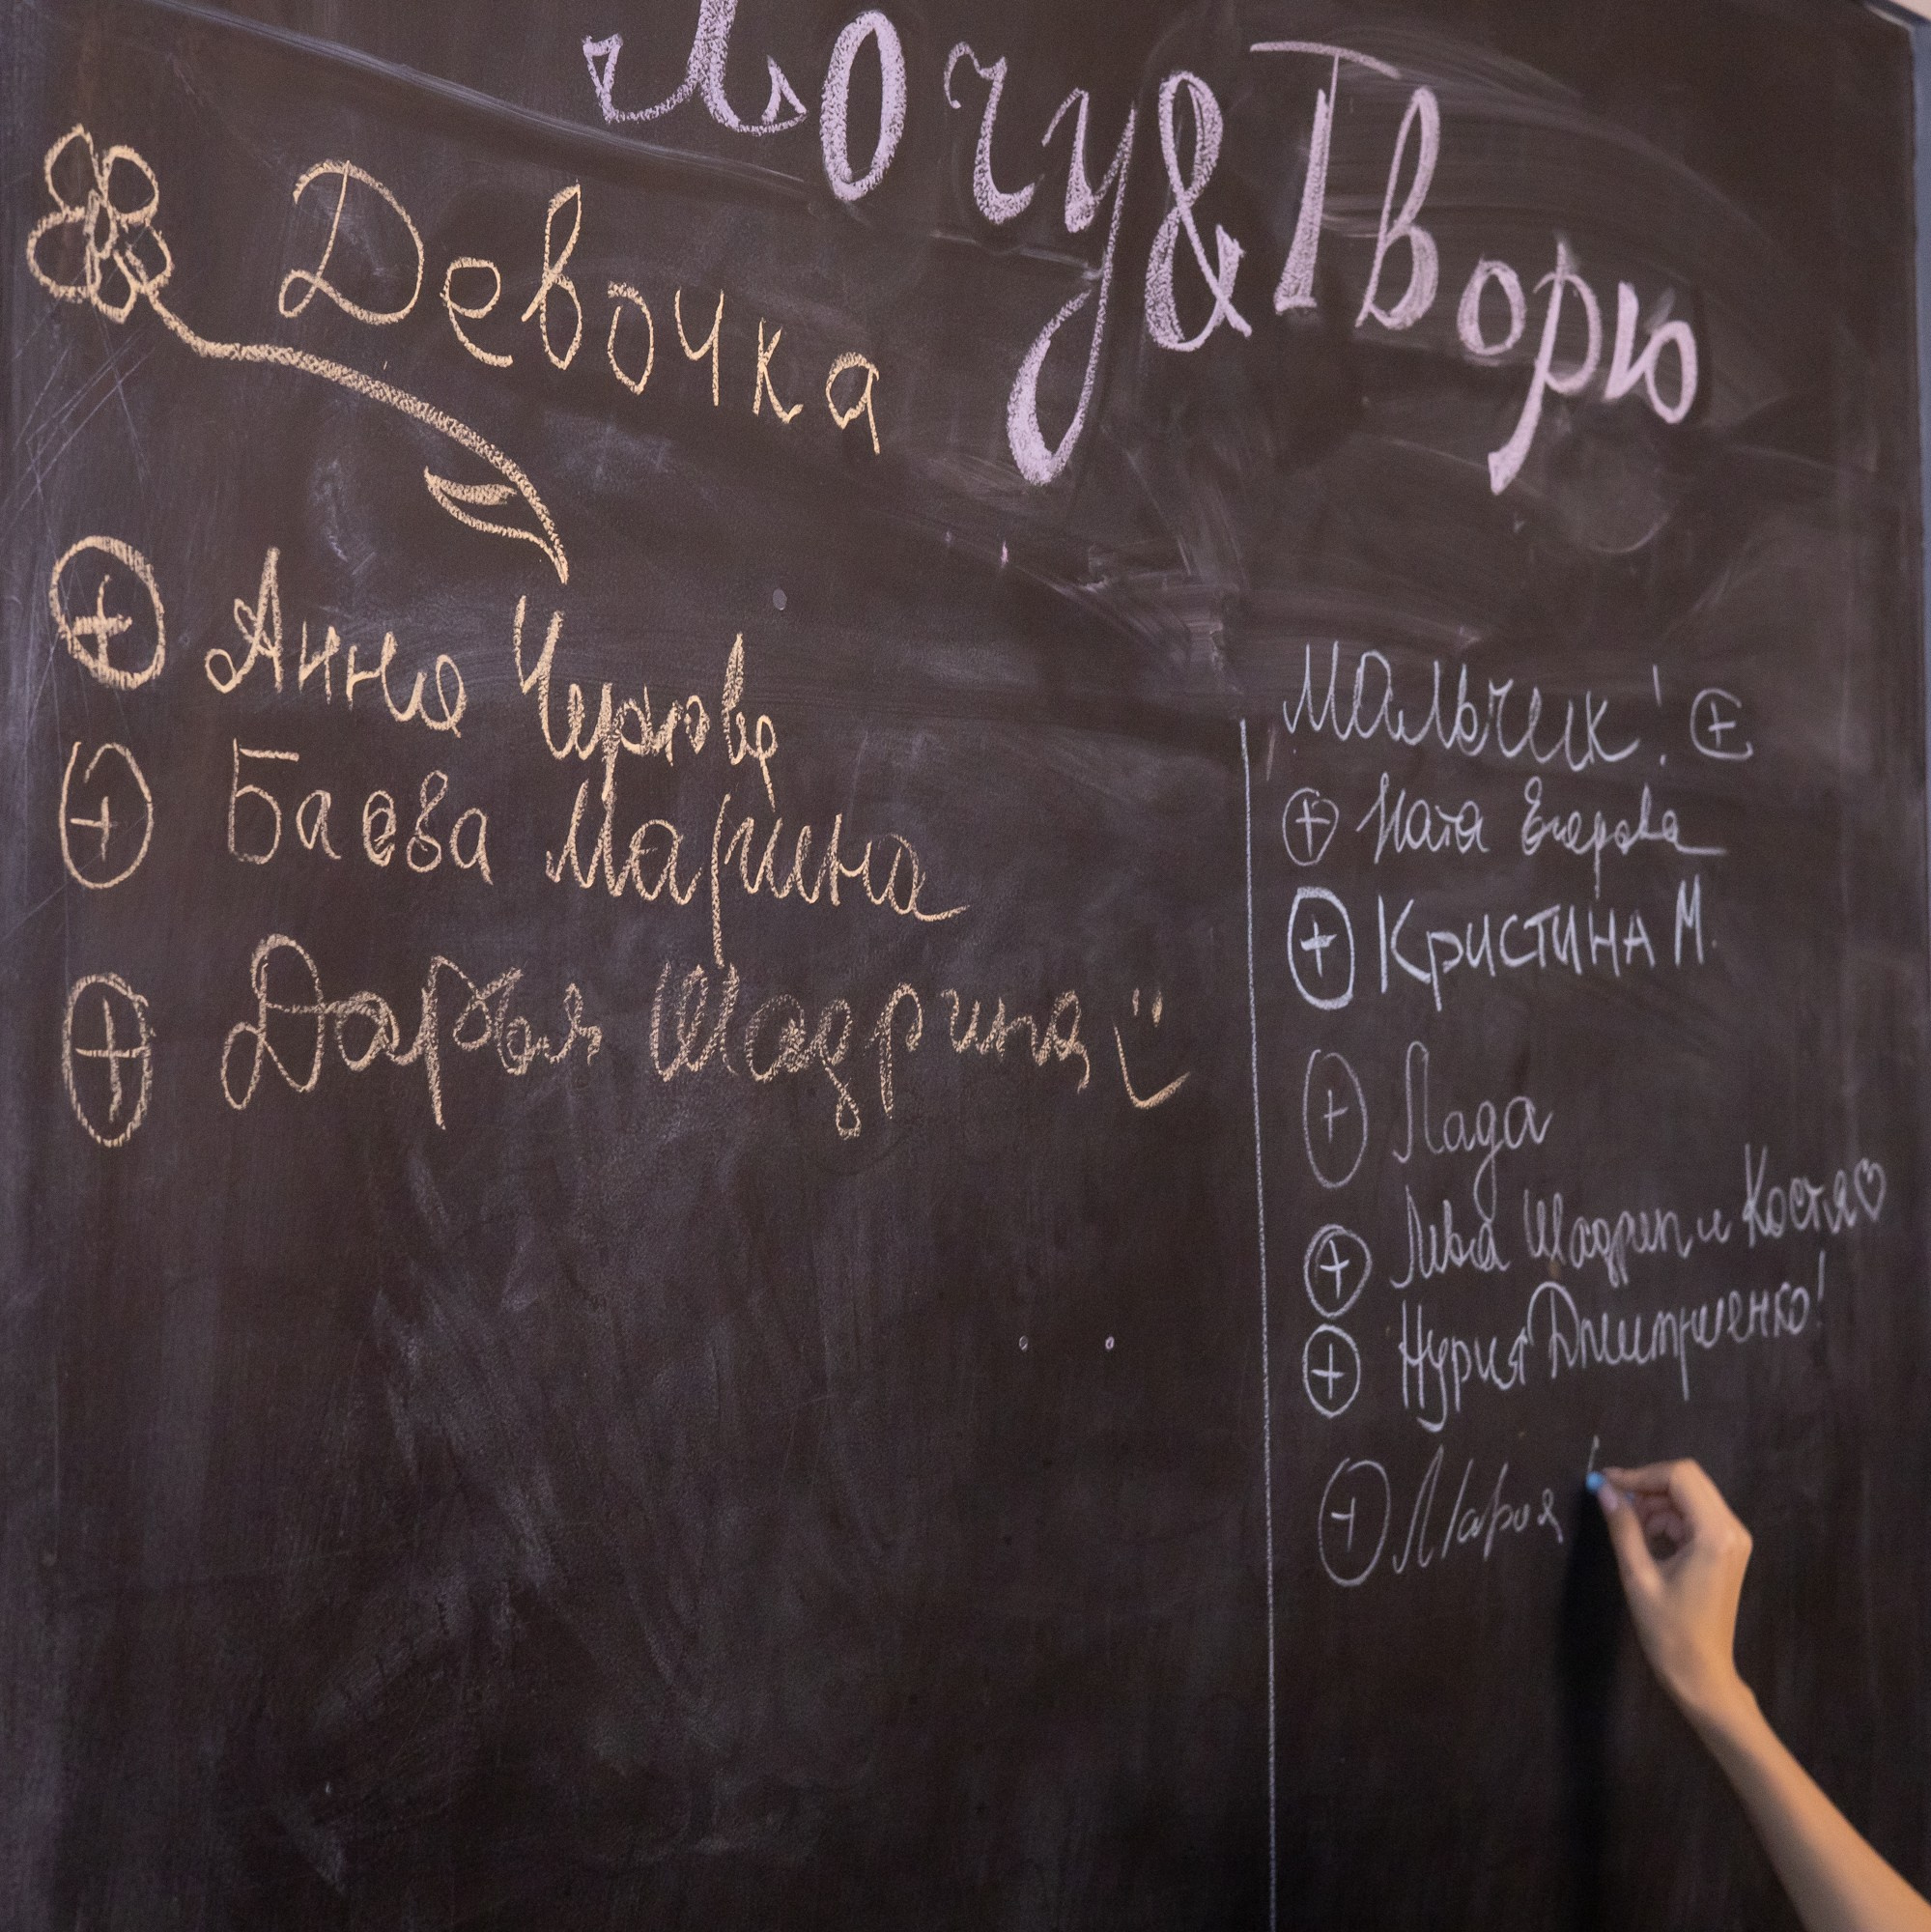 Хочу&Творю
Девочка
Анна
Баева Марина
Дарья Шадрина
Мальчик!
Ната Егорова
Кристина М.
Лада
Лёва Шадрин и Костя
Нурия Дмитриенко!
Мария